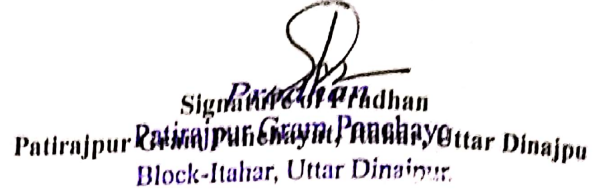 Pradhan
Signature of Pradhan
Patirajpur Gram Panchayat, Itahar, Uttar Dinajpu
Patirajpur Gram Panchayat
Block-Itahar, Uttar Dinajpur.